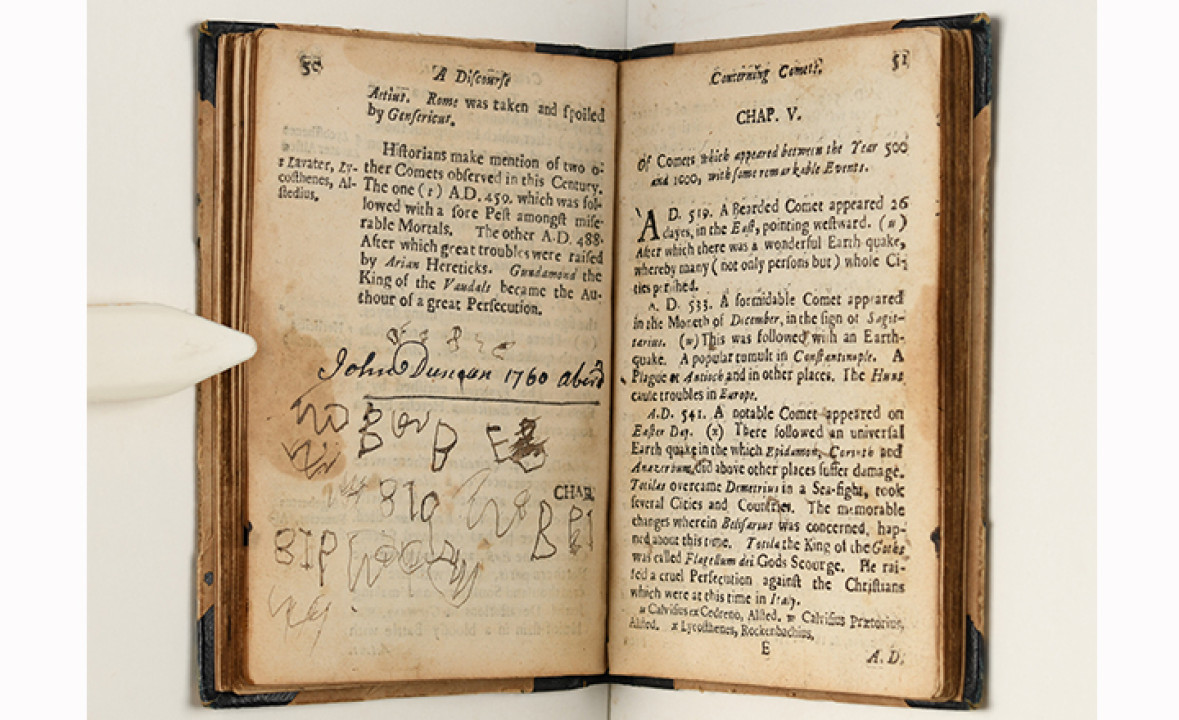 50
A Diſcourſe
Aetius. Rome was taken and ſpoiled
by Genſericus.
Hiſtorians make mention of two o-
ther Comets obſerved in this Century.
The one (s) A.D. 450. which was fol-
lowed with a ſore Peſt amongſt miſe-
rable Mortals. The other A.D. 488.
After which great troubles were raiſed
by Arian Hereticks. Gundamond the
King of the Vandals became the Au-
thour of a great Perſecution.
s Lavater, Ly-
coſthenes, Al-
ſtedius,
John Duncan 1760 aberd
CHAP.
Concerning Comets.
51
CHAP. V.
Of Comets which appeared between the Year 500
and 1000, with ſome remarkable Events.
A D. 519. A Bearded Comet appeared 26
dayes, in the Eaſt, pointing weſtward. (u)
After which there was a wonderful Earth quake,
whereby many (not only perſons but) whole Ci-
ties periſhed.
A. D. 533. A formidable Comet appeared
in the Moneth of December, in the ſign of Sagit-
tarius. (w) This was followed with an Earth-
quake. A popular tumult in Conſtantinople. A
Plague at Antioch and in other places. The Huns
cauſe troubles in Europe.
A.D. 541. A notable Comet appeared on
Eaſter Day. (x) There followed an univerſal
Earth quake in the which Epidamon, Corinth and
Anazerbum, did above other places ſuffer damage.
Totilas overcame Demetrius in a Sea-fight, took
ſeveral Cities and Countries. The memorable
changes wherein Beliſarius was concerned, hap-
ned about this time. Totila the King of the Goths
was called Flagellum dei Gods Scourge. He rai-
ſed a cruel Perſecution againſt the Chriſtians
which were at this time in Italy.
u Calviſius ex Cedreno, Alſted. w Calviſius Prætorius,
Alſted. x Lycoſthenes, Rockenbachius,
E
A. D.